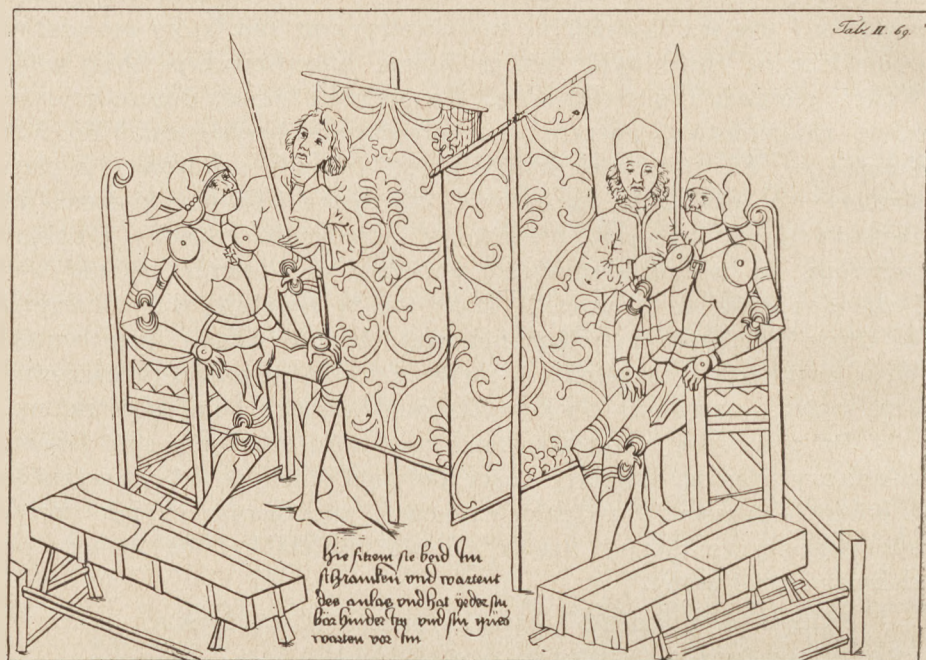 Tab. II. 69.
hie sitzen sie beid Im
schrancken vnd wartent
des anlas vnd hat yeder sin
bar hinder Im vnd sin gries
warten vor Im